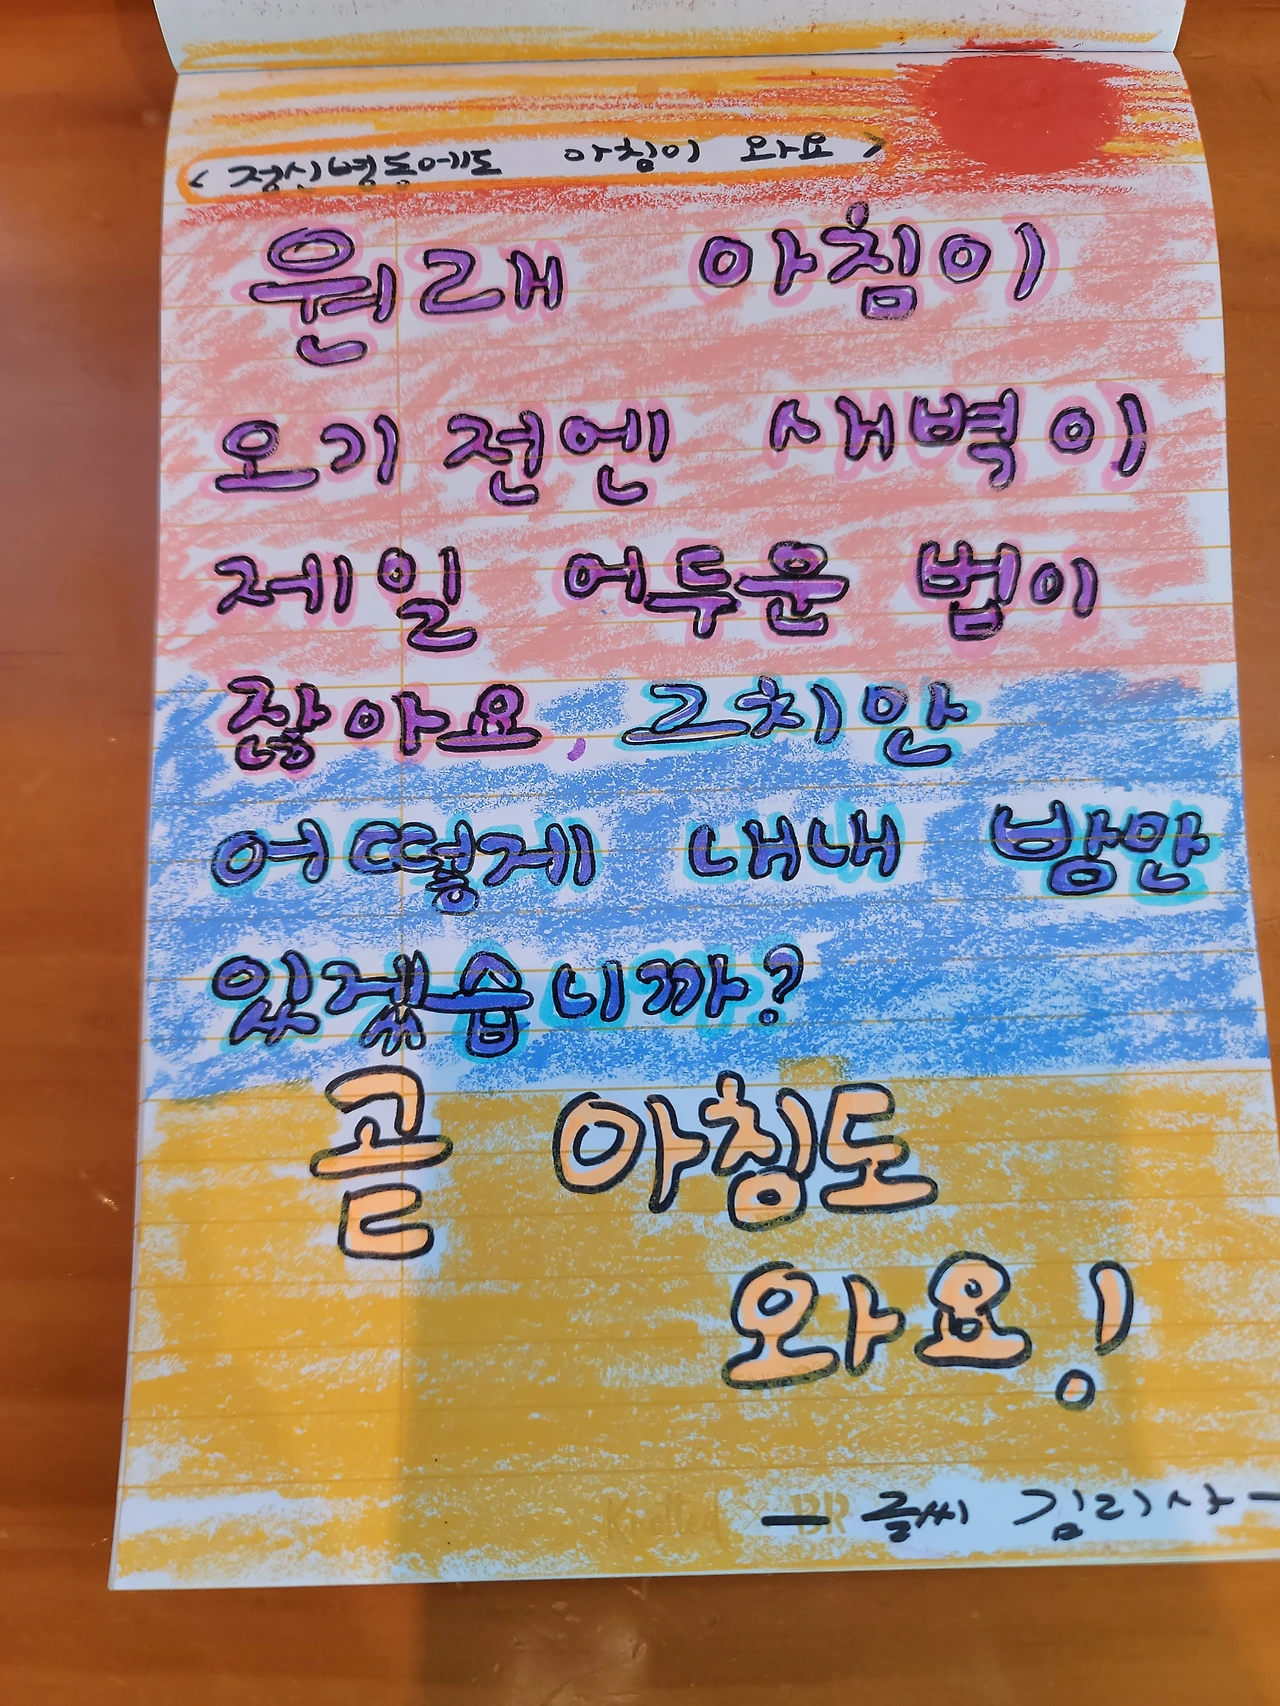 < 정신병동에도 아침이 와요 >
원래 아침이
오기 전엔 새벽이
제일 어두운 법이
잖아요, 그치만
어떻게 내내 밤만
있겠습니까?
곧 아침도
와요!
Knotted X BR
- 글씨 김리사 -